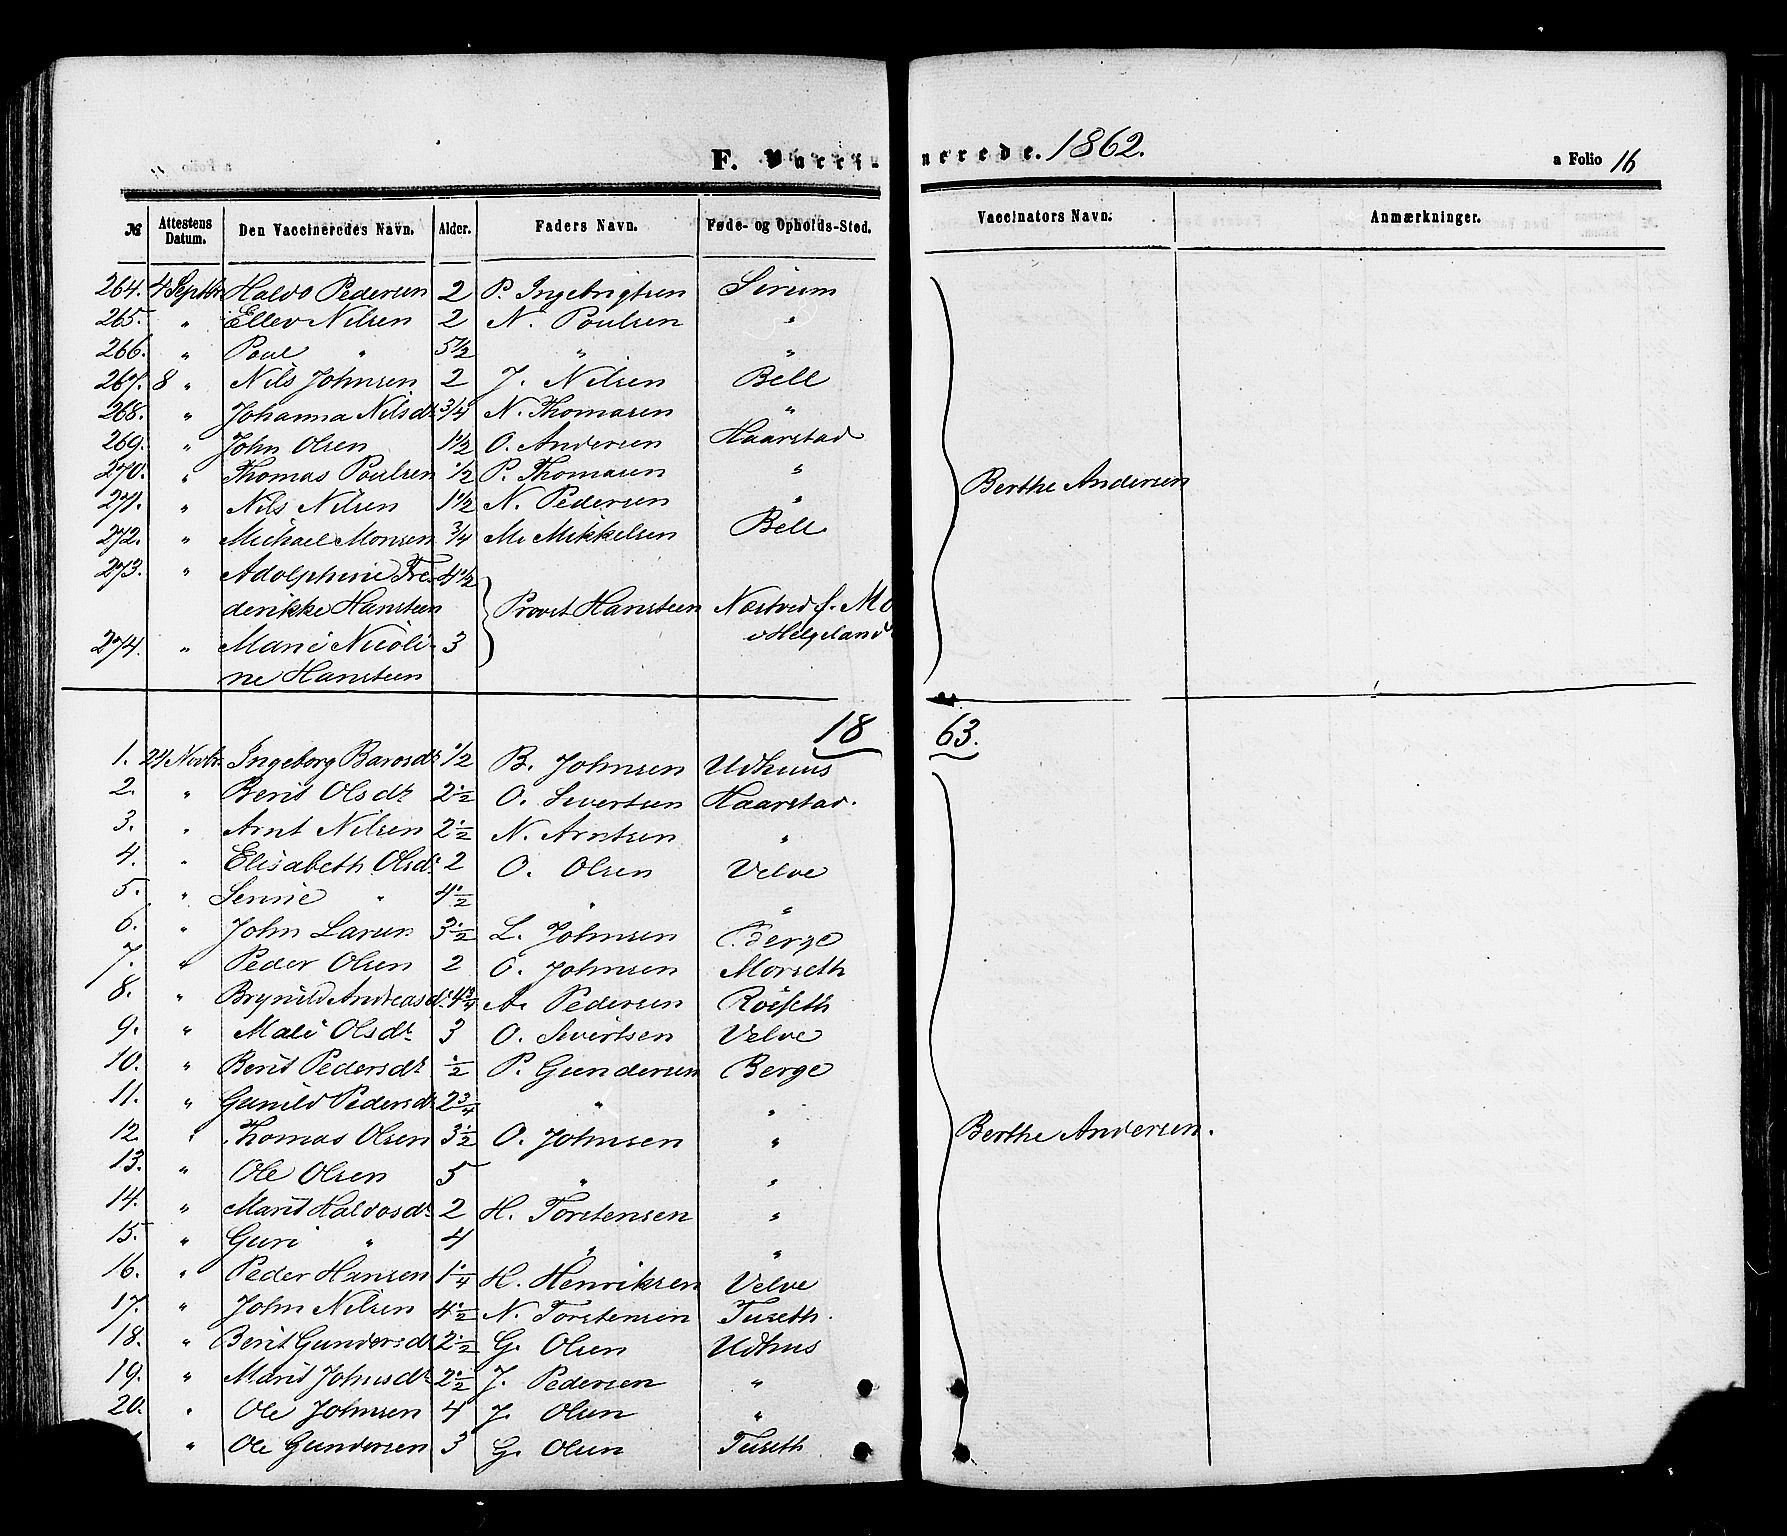 F. Vacci-nerede. 1862. a Folio 16
№ Attestens Datum. Den Vaccineredes Navn. Alder. Faders Navn. Føde- og Opholds-Sted. Vaccinators Navn. Anmærkninger.
264. 4 Septbr. Haldo Pedersen 2 P. Ingebrigtsen Sirum
265. " Ellev Nilsen 2 N. Poulsen "
266. " Poul " 5 1/2 " "
267. 8 " Nils Johnsen 2 J. Nilsen Bell
268. " Johanna Nilsdr. 3/4 N. Thomasen "
269. " John Olsen 1 1/2 O. Andersen Haarstad
270. " Thomas Poulsen 1/2 P. Thomasen "
Berthe Andersen
271. " Nils Nilsen 1 1/2 N. Pedersen "
272. " Michael Monsen 3/4 M. Mikkelsen Bell
273. " Adolphine Fre- 4 1/2
derikke Hansteen Provst Hansteen Næstved f. Mo
274. " Marie Nicoli- 3 i Helgeland
ne Hansteen
1863.
1. 24 Novbr. Ingeborg Barosdr. 1/2 B. Johnsen Udhuus
2. " Berit Olsdr. 2 1/2 O. Sivertsen Haarstad.
3. " Arnt Nilsen 2 1/2 N. Arntsen "
4. " Elisabeth Olsdr. 2 O. Olsen Velve
5. " Sennie " 4 1/2 " "
6. " John Larsen 3 1/2 L. Johnsen Berge
7. " Peder Olsen 2 O. Johnsen Morseth
8. " Brynild Andreasdr. 4 3/4 A. Pedersen Röiseth
9. " Mali Olsdr. 3 O. Sivertsen Velve
10. " Berit Pedersdr. 1/2 P. Gundersen Berge
11. " Gunild Pedersdr. 2 3/4 " "
12. " Thomas Olsen 3 1/2 O. Johnsen " Berthe Andersen.
13. " Ole Olsen 5 " "
14. " Marit Haldosdr. 2 H. Torstensen "
15. " Guri " 4 " "
16. " Peder Hansen 1 1/4 H. Henriksen Velve
17. " John Nilsen 4 1/2 N. Torstensen Tuseth.
18. " Berit Gundersdr. 2 1/2 G. Olsen Udhus
19. " Marit Johnsdr. 2 1/2 J. Pedersen "
20. " Ole Johnsen 4 J. Olsen "
" Ole Gundersen 3 G. Olsen Tuseth